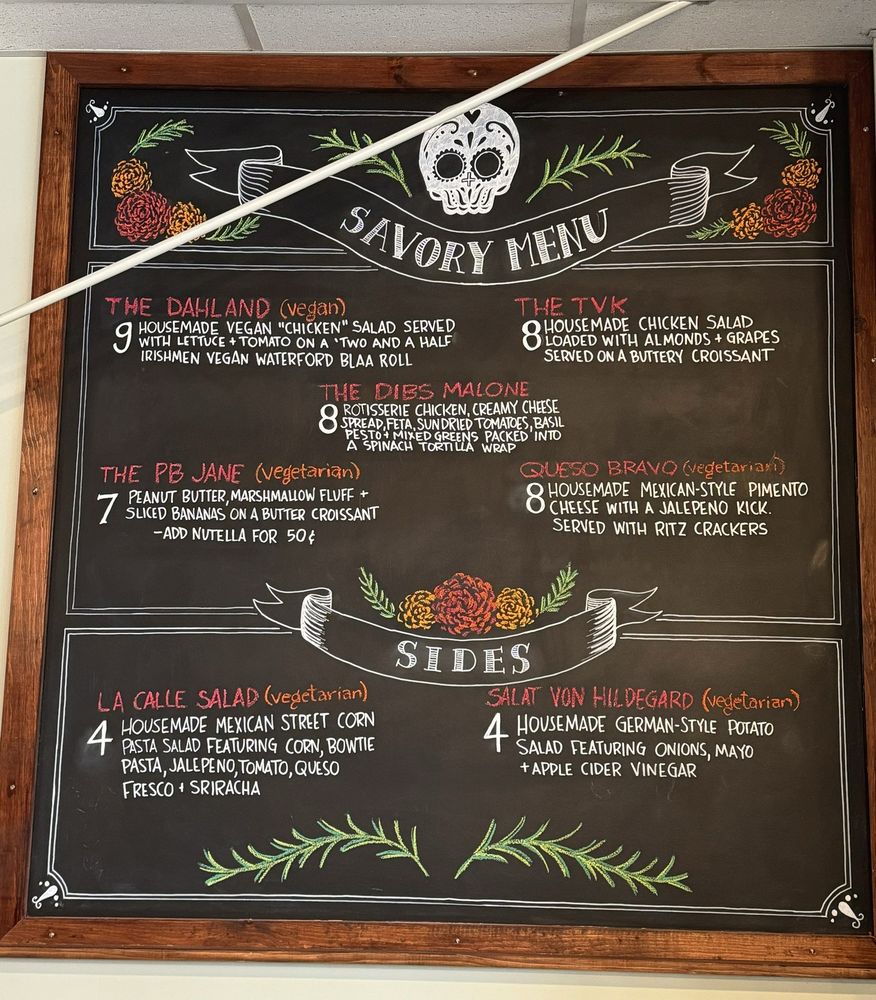 SAVORY MENU
THE DAHLAND (vegan)
9 HOUSEMADE VEGAN "CHICKEN" SALAD SERVED
WITH LETTUCE + TOMATO ON A 'TWO AND A HALF
IRISHMEN VEGAN WATERFORD BLAA ROLL
THE TVK
8 HOUSEMADE CHICKEN SALAD
LOADED WITH ALMONDS + GRAPES
SERVED ON A BUTTERY CROISSANT
THE DIBS MALONE
8 ROTISSERIE CHICKEN, CREAMY CHEESE
SPREAD, FETA, SUNDRIED TOMATOES, BASIL
PESTO + MIXED GREENS PACKED INTO
A SPINACH TORTILLA WRAP
THE PB JANE (vegetarian)
7 PEANUT BUTTER, MARSHMALLOW FLUFF +
SLICED BANANAS ON A BUTTER CROISSANT
-ADD NUTELLA FOR 50¢
QUESO BRAVO (vegetarian)
8 HOUSEMADE MEXICAN-STYLE PIMENTO
CHEESE WITH A JALEPENO KICK.
SERVED WITH RITZ CRACKERS
SIDES
LA CALLE SALAD (vegetarian)
4 HOUSEMADE MEXICAN STREET CORN
PASTA SALAD FEATURING CORN, BOWTIE
PASTA, JALEPENO, TOMATO, QUESO
FRESCO + SRIRACHA
SALAT VON HILDEGARD (vegetarian)
4 HOUSEMADE GERMAN-STYLE POTATO
SALAD FEATURING ONIONS, MAYO
+ APPLE CIDER VINEGAR